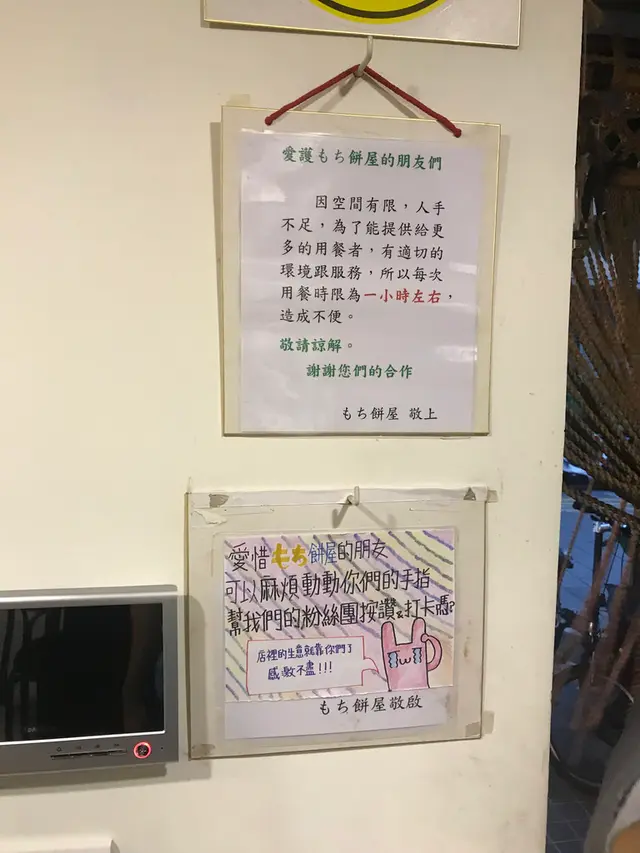 愛護もち餅屋的朋友們
因空間有限，人手
不足，為了能提供給更
多的用餐者，有適切的
環境跟服務，所以每次
用餐時限為一小時左右，
造成不便。
敬請諒解。
謝謝您們的合作
もち餅屋 敬上
愛惜もち餅屋的朋友
可以麻煩動動你們的手指
幫我們的粉絲團按讚&打卡嗎?
店裡的生意就靠你們了
感激不盡!!!
もち餅屋敬啟